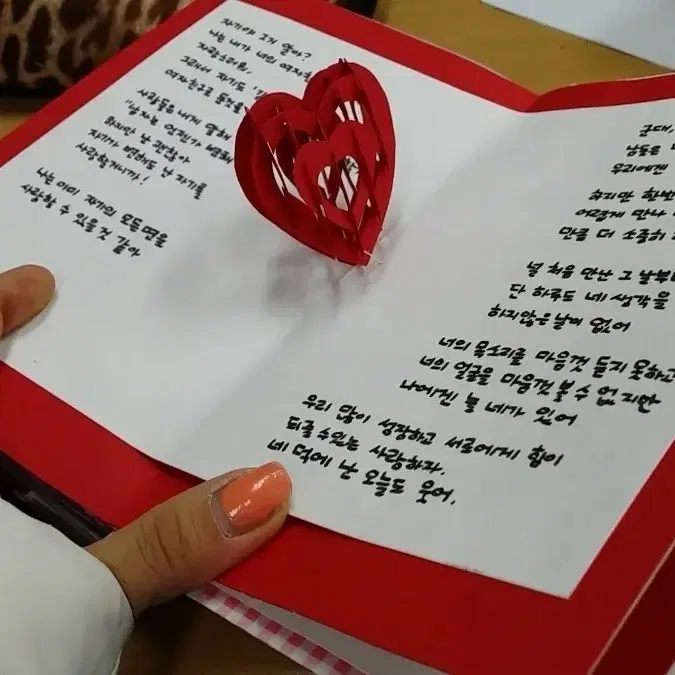 자기야 그거 알아?
나는 내가 너의 여자
자랑스러워,
그래서 자기도
여자친구로
사람들은 내게 말해
"남자는 언젠가 변해
하지만 난 괜찮아
자기가 변해도 난 자기를
사랑할거니까!
나는 이미 자기의 모든면을
사랑할 수 있을것 같아
군대,
남들은
우리에겐
하지만 한번
어렵게 만나
만큼 더 소중히
널 처음 만난 그 날부터
단 하루도 네 생각을
하지않은날이 없어
너의 목소리를 마음껏 듣지 못하고
너의 얼굴을 마음껏 볼 수 없지만
나에겐 늘 네가 있어
우리 많이 성장하고 서로에게 힘이
되줄 수있는 사랑하자.
네 덕에 난 오늘도 웃어.